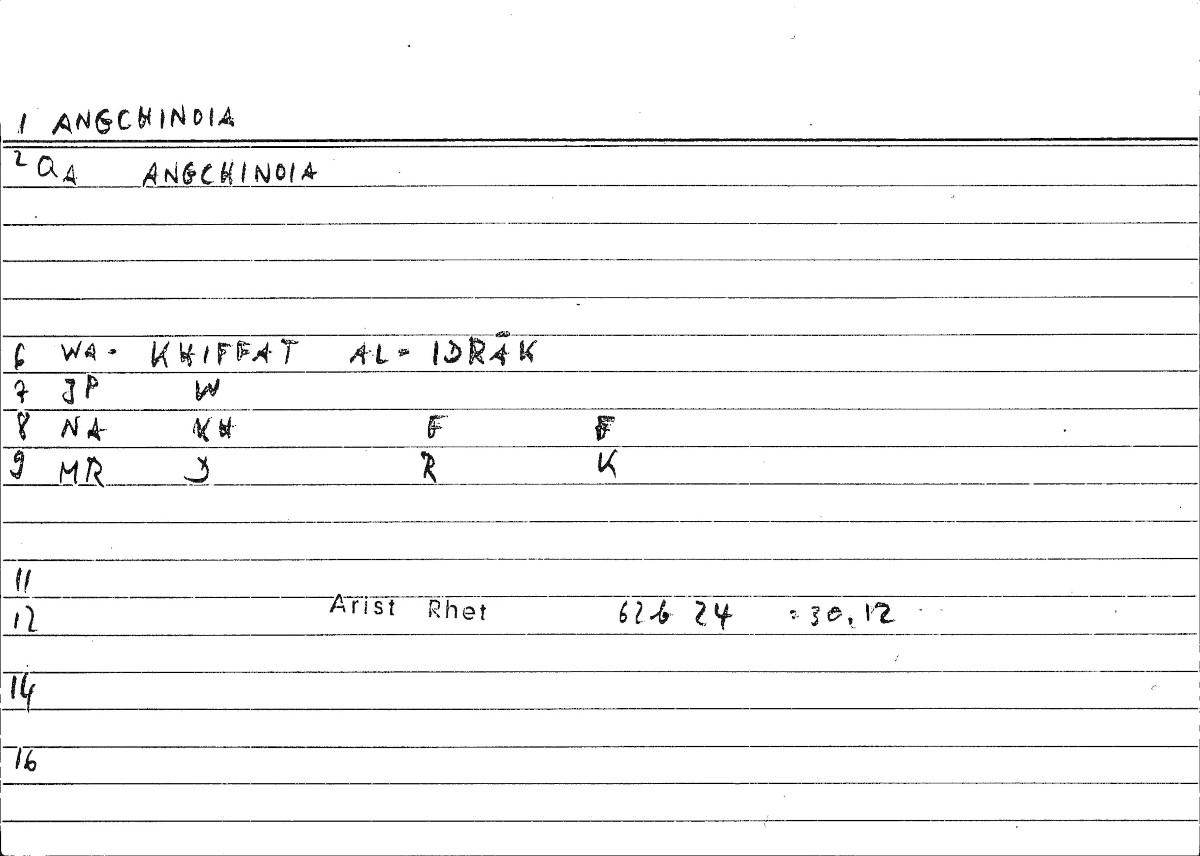 1 ANGCHINOIA
2 QA ANGCHINOIA
6 WA- KHIFFAT AL- IDRĀK
7 JP W
8 NA KH F F
9 MR D R K
11
12 Arist Rhet 62b 24 = 30,12
14
16